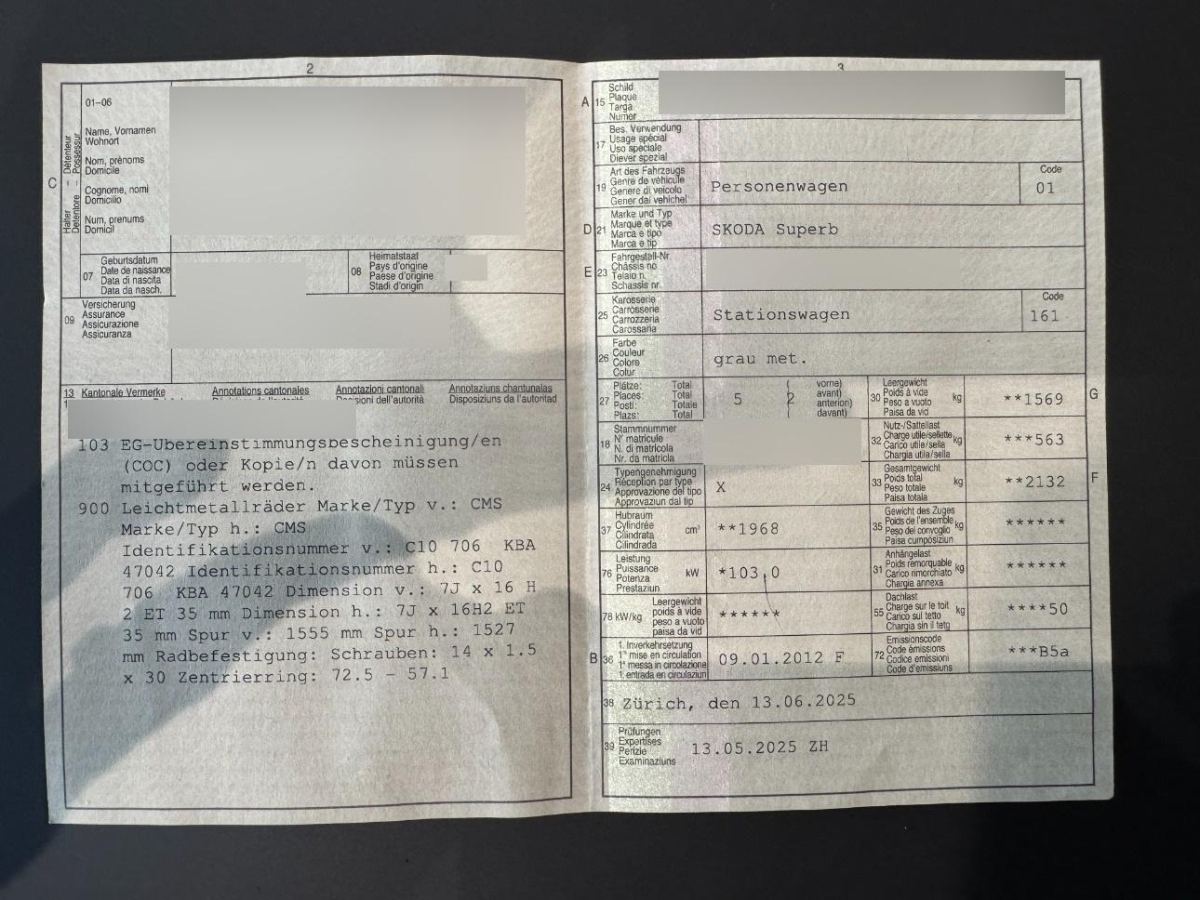 2
01-06
Halter – Détenteur
Detentore – Possessur
C
Name, Vornamen
Wohnort
Nom, prénoms
Domicile
Cognome, nomi
Domicilio
Num, prenums
Domicil
07
Geburtsdatum
Date de naissance
Data di nascita
Data da nasch.
08
Heimatstaat
Pays d'origine
Paese d'origine
Stadi d'origin
09
Versicherung
Assurance
Assicurazione
Assicuranza
13 Kantonale Vermerke Annotations cantonales Annotazioni cantonali Annotaziuns chantunalas
Décisions de l'autorité Decisioni dell'autorità Disposiziuns da l'autoritad
103 EG-Übereinstimmungsbescheinigung/en
(COC) oder Kopie/n davon müssen
mitgeführt werden.
900 Leichtmetallräder Marke/Typ v.: CMS
Marke/Typ h.: CMS
Identifikationsnummer v.: C10 706 KBA
47042 Identifikationsnummer h.: C10
706 KBA 47042 Dimension v.: 7J x 16 H
2 ET 35 mm Dimension h.: 7J x 16H2 ET
35 mm Spur v.: 1555 mm Spur h.: 1527
mm Radbefestigung: Schrauben: 14 x 1.5
x 30 Zentrierring: 72.5 - 57.1
3
A 15
Schild
Plaque
Targa
Numer
17
Bes. Verwendung
Usage spécial
Uso speciale
Diever spezial
19
Art des Fahrzeugs
Genre de véhicule
Genere di veicolo
Gener dal vehichel
Personenwagen
Code
01
D 21
Marke und Typ
Marque et type
Marca e tipo
Marca e tip
SKODA Superb
E 23
Fahrgestell-Nr.
Châssis no
Telaio n.
Schassis nr.
25
Karosserie
Carrosserie
Carrozzeria
Carossaria
Stationswagen
Code
161
26
Farbe
Couleur
Colore
Colur
grau met.
27
Plätze: Total ( vorne)
Places: Total ( avant)
Posti: Totale ( anteriori)
Plazs: Total ( davant)
5 2
30
Leergewicht
Poids à vide
Peso a vuoto
Paisa da vid
kg
**1569
G
18
Stammnummer
N° matricule
N. di matricola
Nr. da matricla
32
Nutz-/Sattellast
Charge utile/sellette
Carico utile/sella
Chargia utila/sella
kg
***563
24
Typengenehmigung
Réception par type
Approvazione del tipo
Approvaziun dal tip
X
33
Gesamtgewicht
Poids total
Peso totale
Paisa totala
kg
**2132
F
37
Hubraum
Cylindrée
Cilindrata
Cilindrada
cm³
**1968
35
Gewicht des Zuges
Poids de l'ensemble
Peso del convoglio
Paisa cumposiziun
kg
******
76
Leistung
Puissance
Potenza
Prestaziun
kW
*103,0
31
Anhängelast
Poids remorquable
Carico rimorchiato
Chargia annexa
kg
******
78 kW/kg
Leergewicht
poids à vide
peso a vuoto
paisa da vid
******
55
Dachlast
Charge sur le toit
Carico sul tetto
Chargia sin il tetg
kg
****50
B 36
1. Inverkehrsetzung
1re mise en circulation
1a messa in circolazione
1. entrada en circulaziun
09.01.2012 F
72
Emissionscode
Code émissions
Codice emissioni
Code d'emissiuns
***B5a
38 Zürich, den 13.06.2025
39
Prüfungen
Expertises
Perizie
Examinaziuns
13.05.2025 ZH